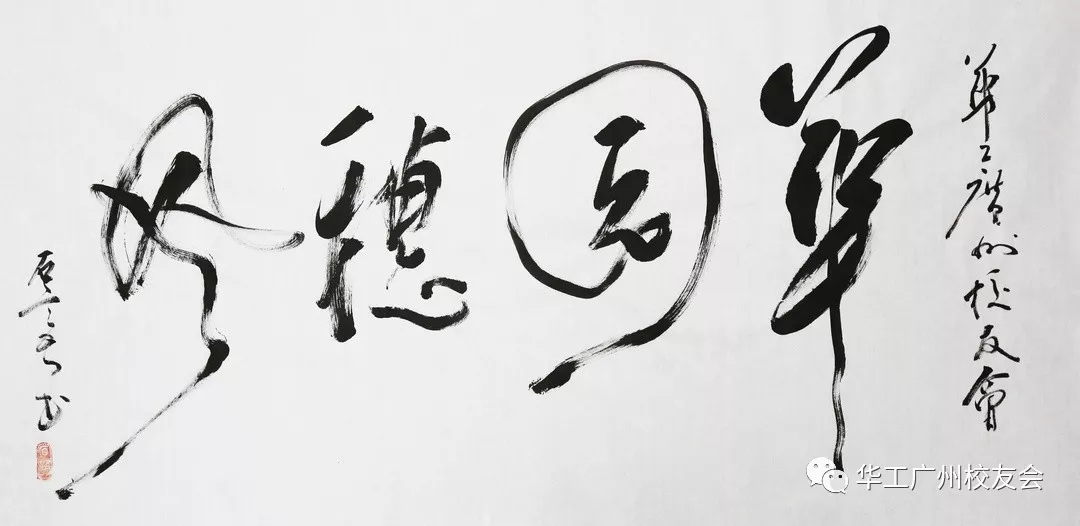 華工廣州校友會
華園穗
书
华工广州校友会